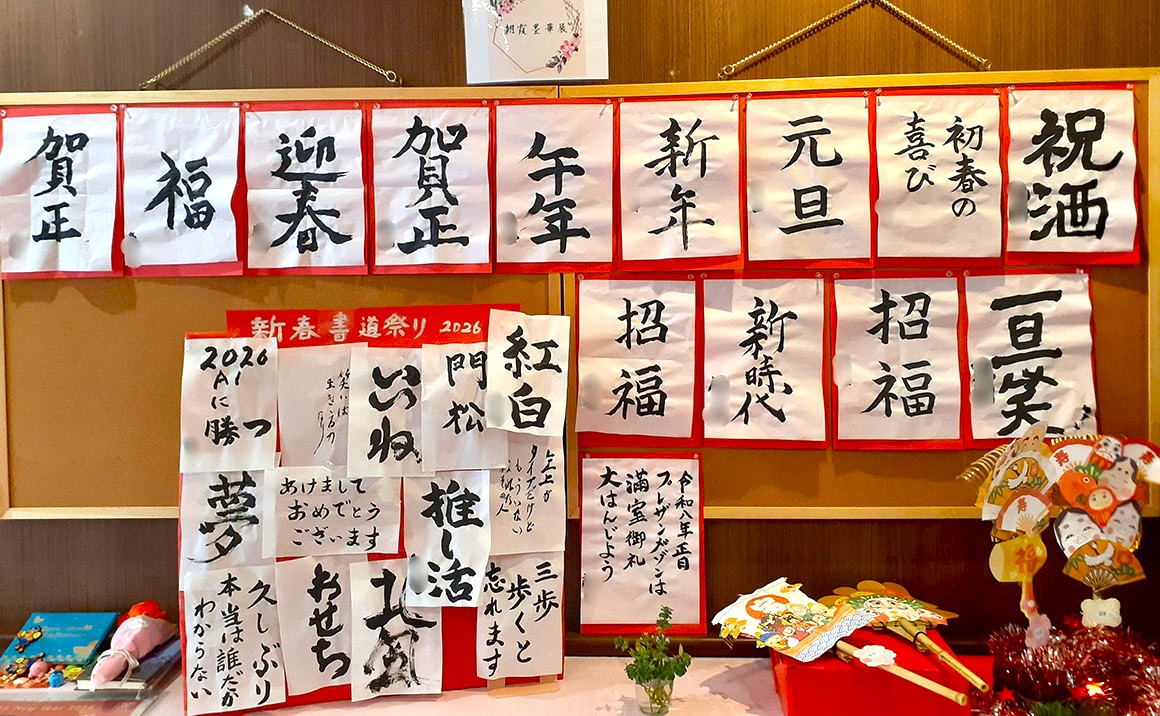 朝霞墨華展
賀正
福
迎春
賀正
午年
新年
元旦
初春の
喜び
祝酒
招福
新時代
招福
一旦笑
新春書道祭り 2026
2026
AIに
勝つ
笑いは
いいね
門松
紅白
夢
あけまして
おめでとう
ございます
推し活
年上が
タイプだけど
もういない
久しぶり
本当は誰だか
わからない
おせち
三歩
歩くと
忘れます
令和八年正月
プレザンメゾンは
満室御礼
大はんじょう
寿
寿
福
寿